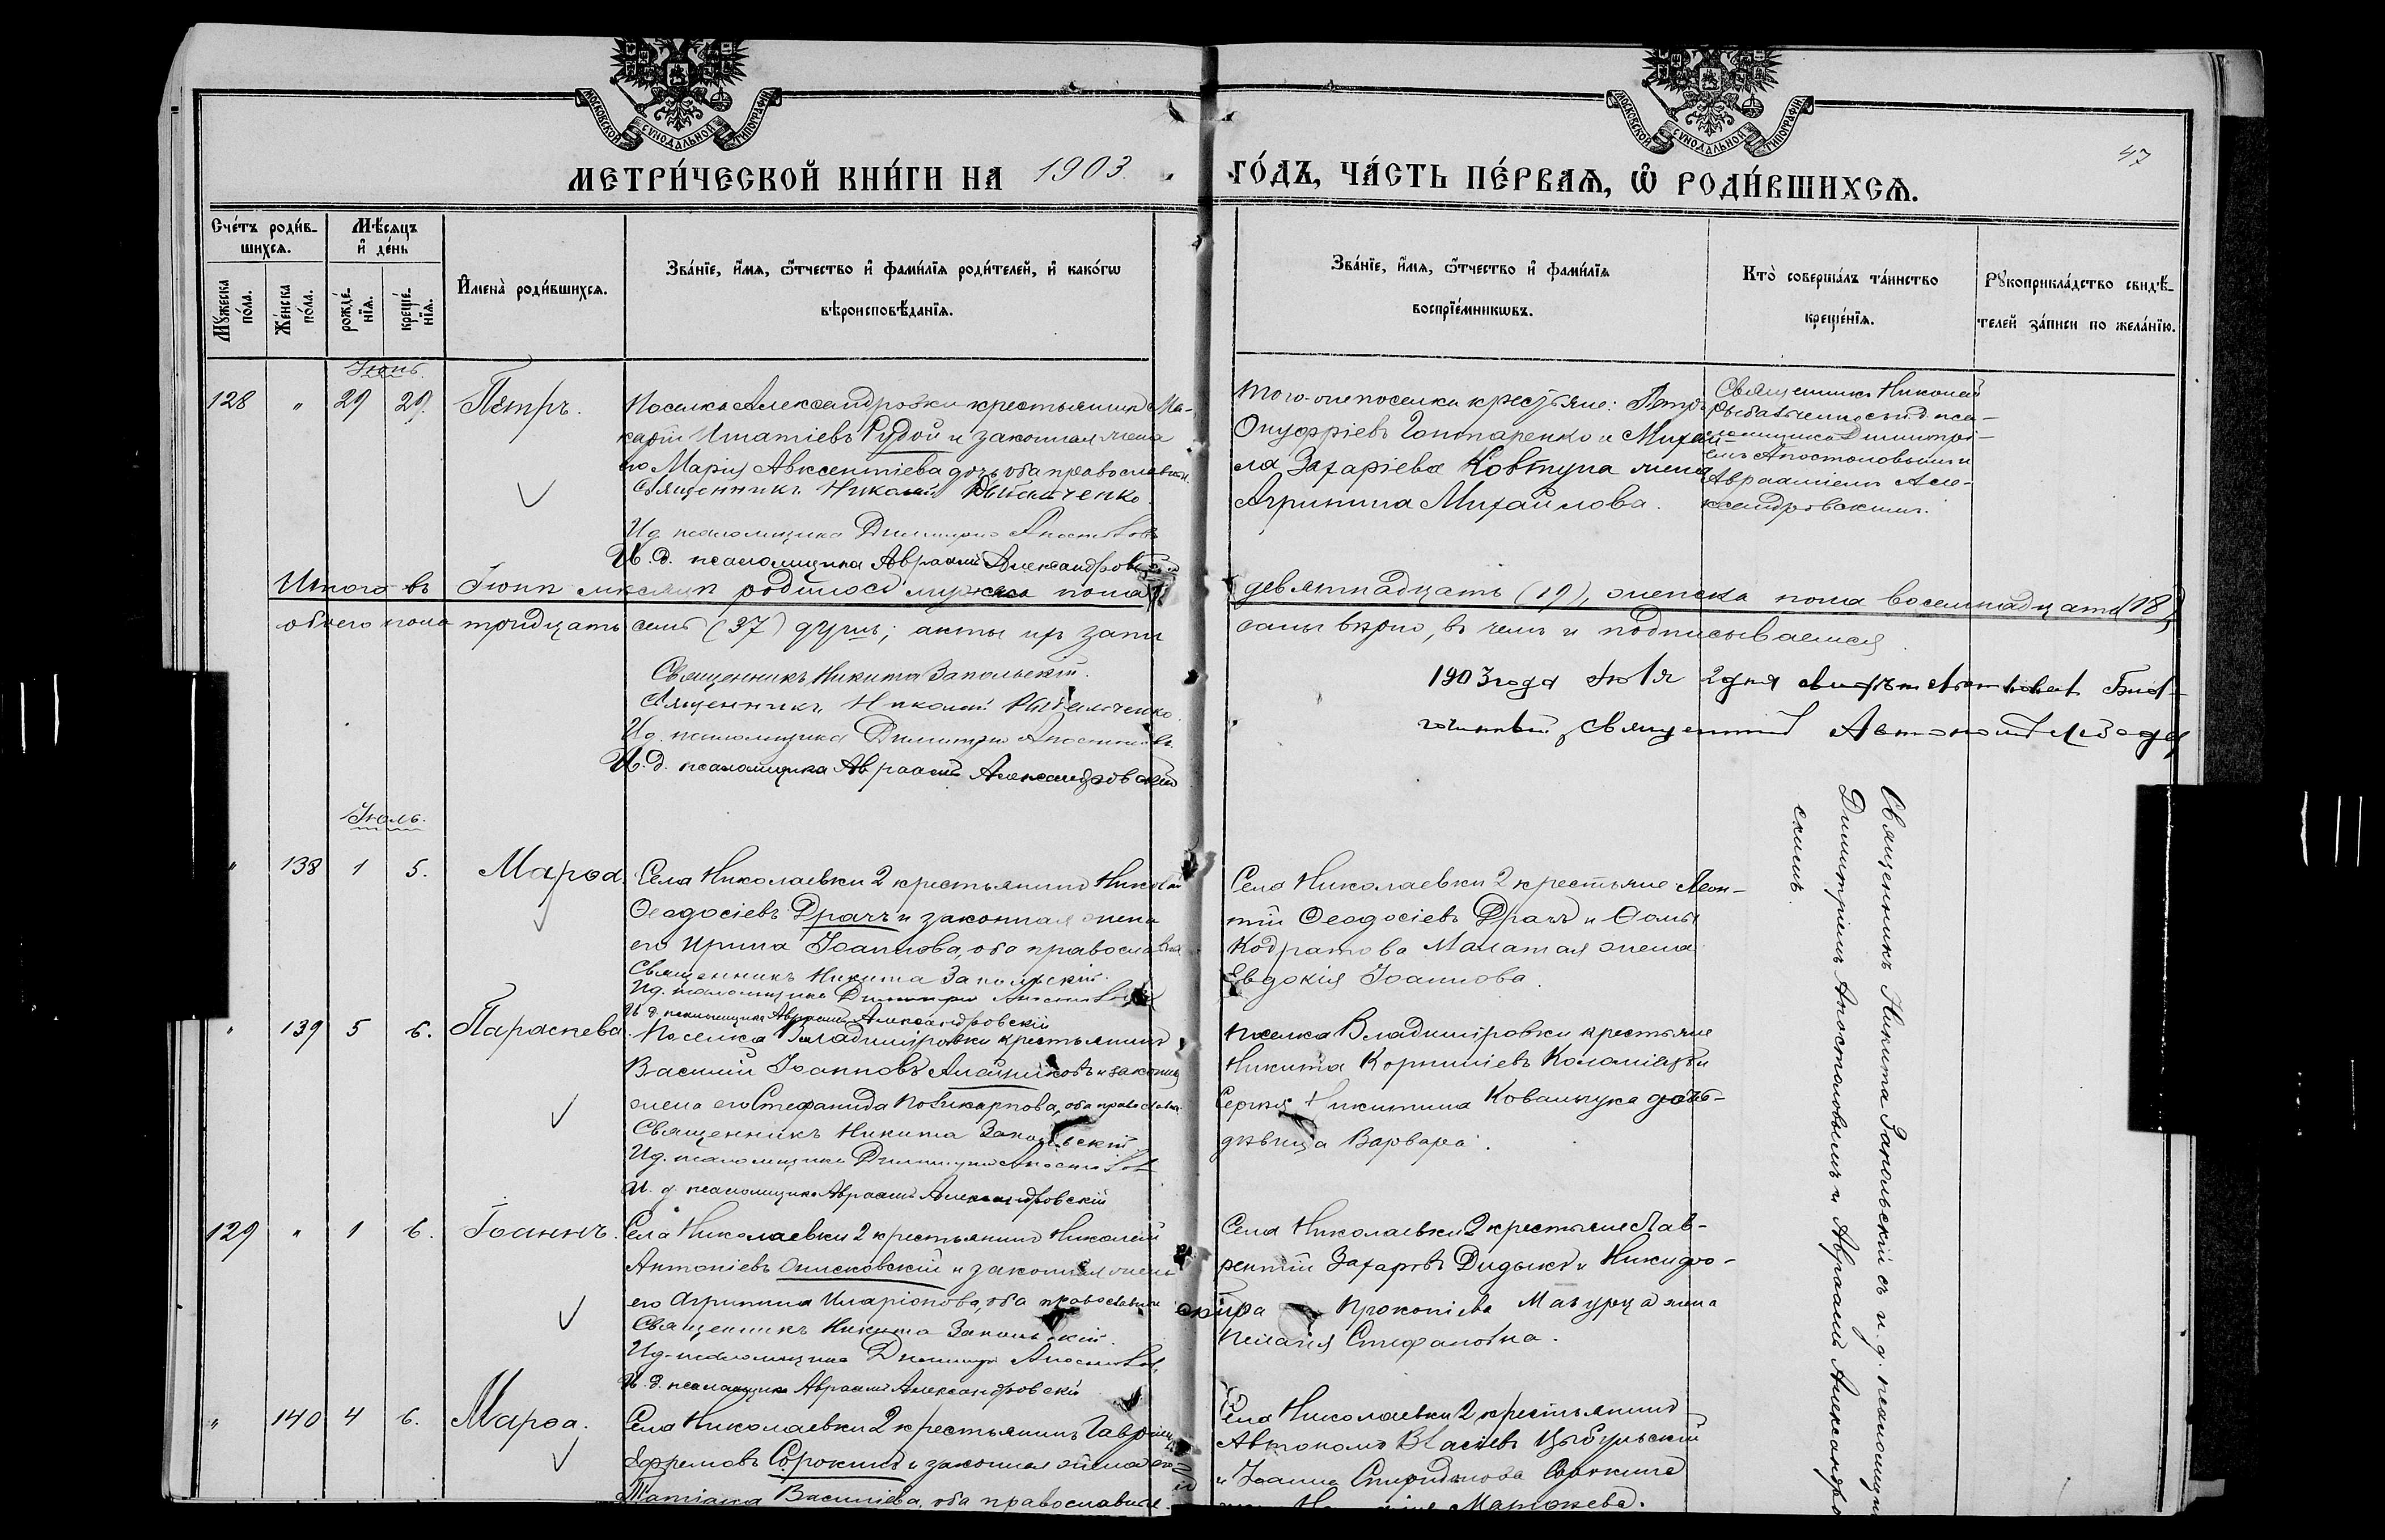 МОСКОВСКОЙ СУНОДАЛЬНОЙ ТИПОГРАФІИ
МОСКОВСКОЙ СУНОДАЛЬНОЙ ТИПОГРАФІИ
47
МЕТРИ́ЧЕСКОЙ КНИ́ГИ НА 1903 ГО́ДЪ, ЧА́СТЬ ПЕ́РВАѦ, Ѽ РОДИ́ВШИХСѦ.
Сче́тъ роди́в-
шихсѧ.
Мѣ́сѧцъ
и҆ де́нь
Мꙋ́жеска по́ла.
Же́нска по́ла.
рожде́-
нїѧ.
креще́-
нїѧ.
И҆мена̀ роди́вшихсѧ.
Зва́нїе, и҆́мѧ, ѻ҆́тчество и҆ фами́лїѧ роди́телей, и҆ како́гѡ
вѣроисповѣ́данїѧ.
Зва́нїе, и҆́мѧ, ѻ҆́тчество и҆ фами́лїѧ
воспрїе́мникѡвъ.
Кто̀ соверша́лъ та́инство
креще́нїѧ.
Рꙋкоприкла́дство свидѣ́-
телей за́писи по жела́нїю.
Іюнь
128 " 29 29. Петръ.
Поселка Александровки крестьянинъ Ма-
карій Игнатіевъ Рудой и законная жена
его Марія Авксентіева дочь оба православн.
Священникъ Николай
И д. псаломщика Димитрій Апостоловъ
И. д. псаломщика Авраамій Александровскій
того-же поселка крестьяне: Петръ
Онуфріевъ Гонтаренко и Михаи-
ла Захаріева Ковтуна жена
Агрипина Михайлова.
Священникъ Николай
съ и. д. пса-
ломщика Димитрі-
емъ Апостоловымъ и
Авраамiемъ Але-
ксандровскимъ.
Итого въ Іюнѣ мѣсяцѣ родилось мужеска пола девятнадцать (19), женска пола восемнадцать (18)
обоего пола тридцать семь (37) душъ; акты ихъ запи
саны вѣрно, въ чемъ и подписываемся
Священникъ Никита Запольскій.
Священникъ Николай
И д. псаломщика Димитрій Апостоловъ
И. д. псаломщика Авраамій Александровскій
1903 года Іюля 2 дня
священникъ Автономъ
Іюль.
" 138 1 5. Марѳа.
Села Николаевки 2 крестьянинъ Николай
Ѳеодосіевъ Драчъ и законная жена
его Ирина Іоаннова, оба православн.
Священникъ Никита Запольскій.
И д. псаломщика Димитрій Апостоловъ
И. д. псаломщика Авраамій Александровскій
Села Николаевки 2 крестьяне Леон-
тій Ѳеодосіевъ Драчъ и Ѳомы
Кодратова жена
Евдокія Іоаннова.
" 139 5 6. Параскева.
Поселка Владиміровки крестьянинъ
Василій Іоанновъ и законная
жена его Стефанида Поликарпова, оба православн.
Священникъ Никита Запольскій
И д. псаломщика Димитрій Апостоловъ
И. д. псаломщика Авраамій Александровскій
поселка Владиміровки крестьяне
Никита Корниліевъ и
Сергія Никитина Ковальчука дочь-
дѣвица Варвара.
129 " 1 6. Іоаннъ.
Села Николаевки 2 крестьянинъ Николай
Антоніевъ и законная жена
его Агрипина Иларіонова, оба православные
Священникъ Никита Запольскій.
И д. псаломщика Димитрій Апостоловъ
И. д. псаломщика Авраамій Александровскій
Села Николаевки 2 крестьяне Лав-
рентій Захаровъ Дидыкъ и Никифо-
Прокопіева Мазурца жена
Пелагія Стефановна.
" 140 4 6. Марѳа.
Села Николаевки 2 крестьянинъ Гавріилъ
Ефремовъ Сорокинъ и законная жена его
Татіана Василіева, оба православные.
Села Николаевки 2 крестьянинъ
Автономъ Цыбульскій
и Іоанна Спиридонова Сорокина
Священникъ Никита Запольскій съ и. д. псаломщика
Димитріемъ Апостоловымъ и Авраамій Александро
скимъ.